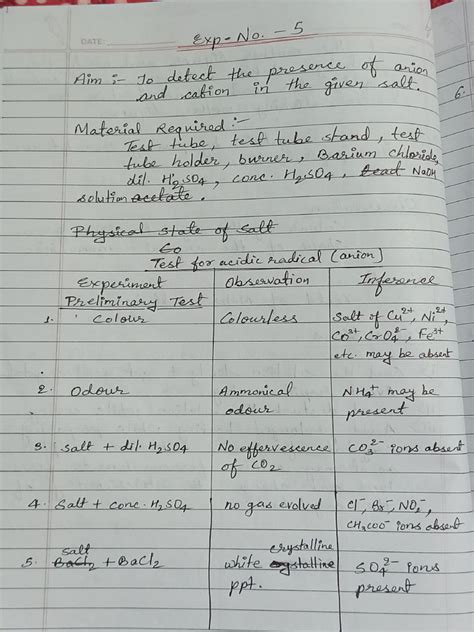 DATE:
Exp. No. - 5
Aim :- To detect the presence of anion
and cation in the given salt.
Material Required :-
Test tube, test tube stand, test
tube holder, burner, Barium chloride,
dil. H2SO4, conc. H2SO4, Lead NaOH
solution acetate.
Physical state of salt
Co
Test for acidic radical (anion)
Experiment Observation Inference
Preliminary Test
1. Colour Colourless Salt of Cu2+, Ni2+,
Co3+, CrO42-, Fe3+
etc. may be absent
2. Odour Ammonical NH4+ may be
odour present
3. Salt + dil. H2SO4 No effervescence CO32- ions absent
of CO2
4. Salt + conc. H2SO4 no gas evolved Cl-, Br-, NO3-,
CH3COO- ions absent
salt crystalline
5. BaCl2 + BaCl2 white crystalline SO42- ions
ppt. present
6.